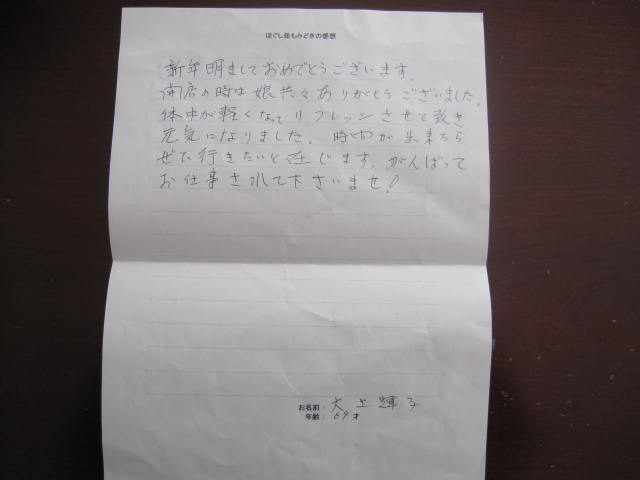 ほぐし処もみどきの感想
新年明ましておめでとうございます
開店の時は娘共々ありがとうございました。
体中が軽くなってリフレッシさせて致き
元気になりました。時間が出来たら
ぜひ行きたいと じます。がんばって
お仕事されて下さいませ!
お名前: 大上輝子
年齢: 69才